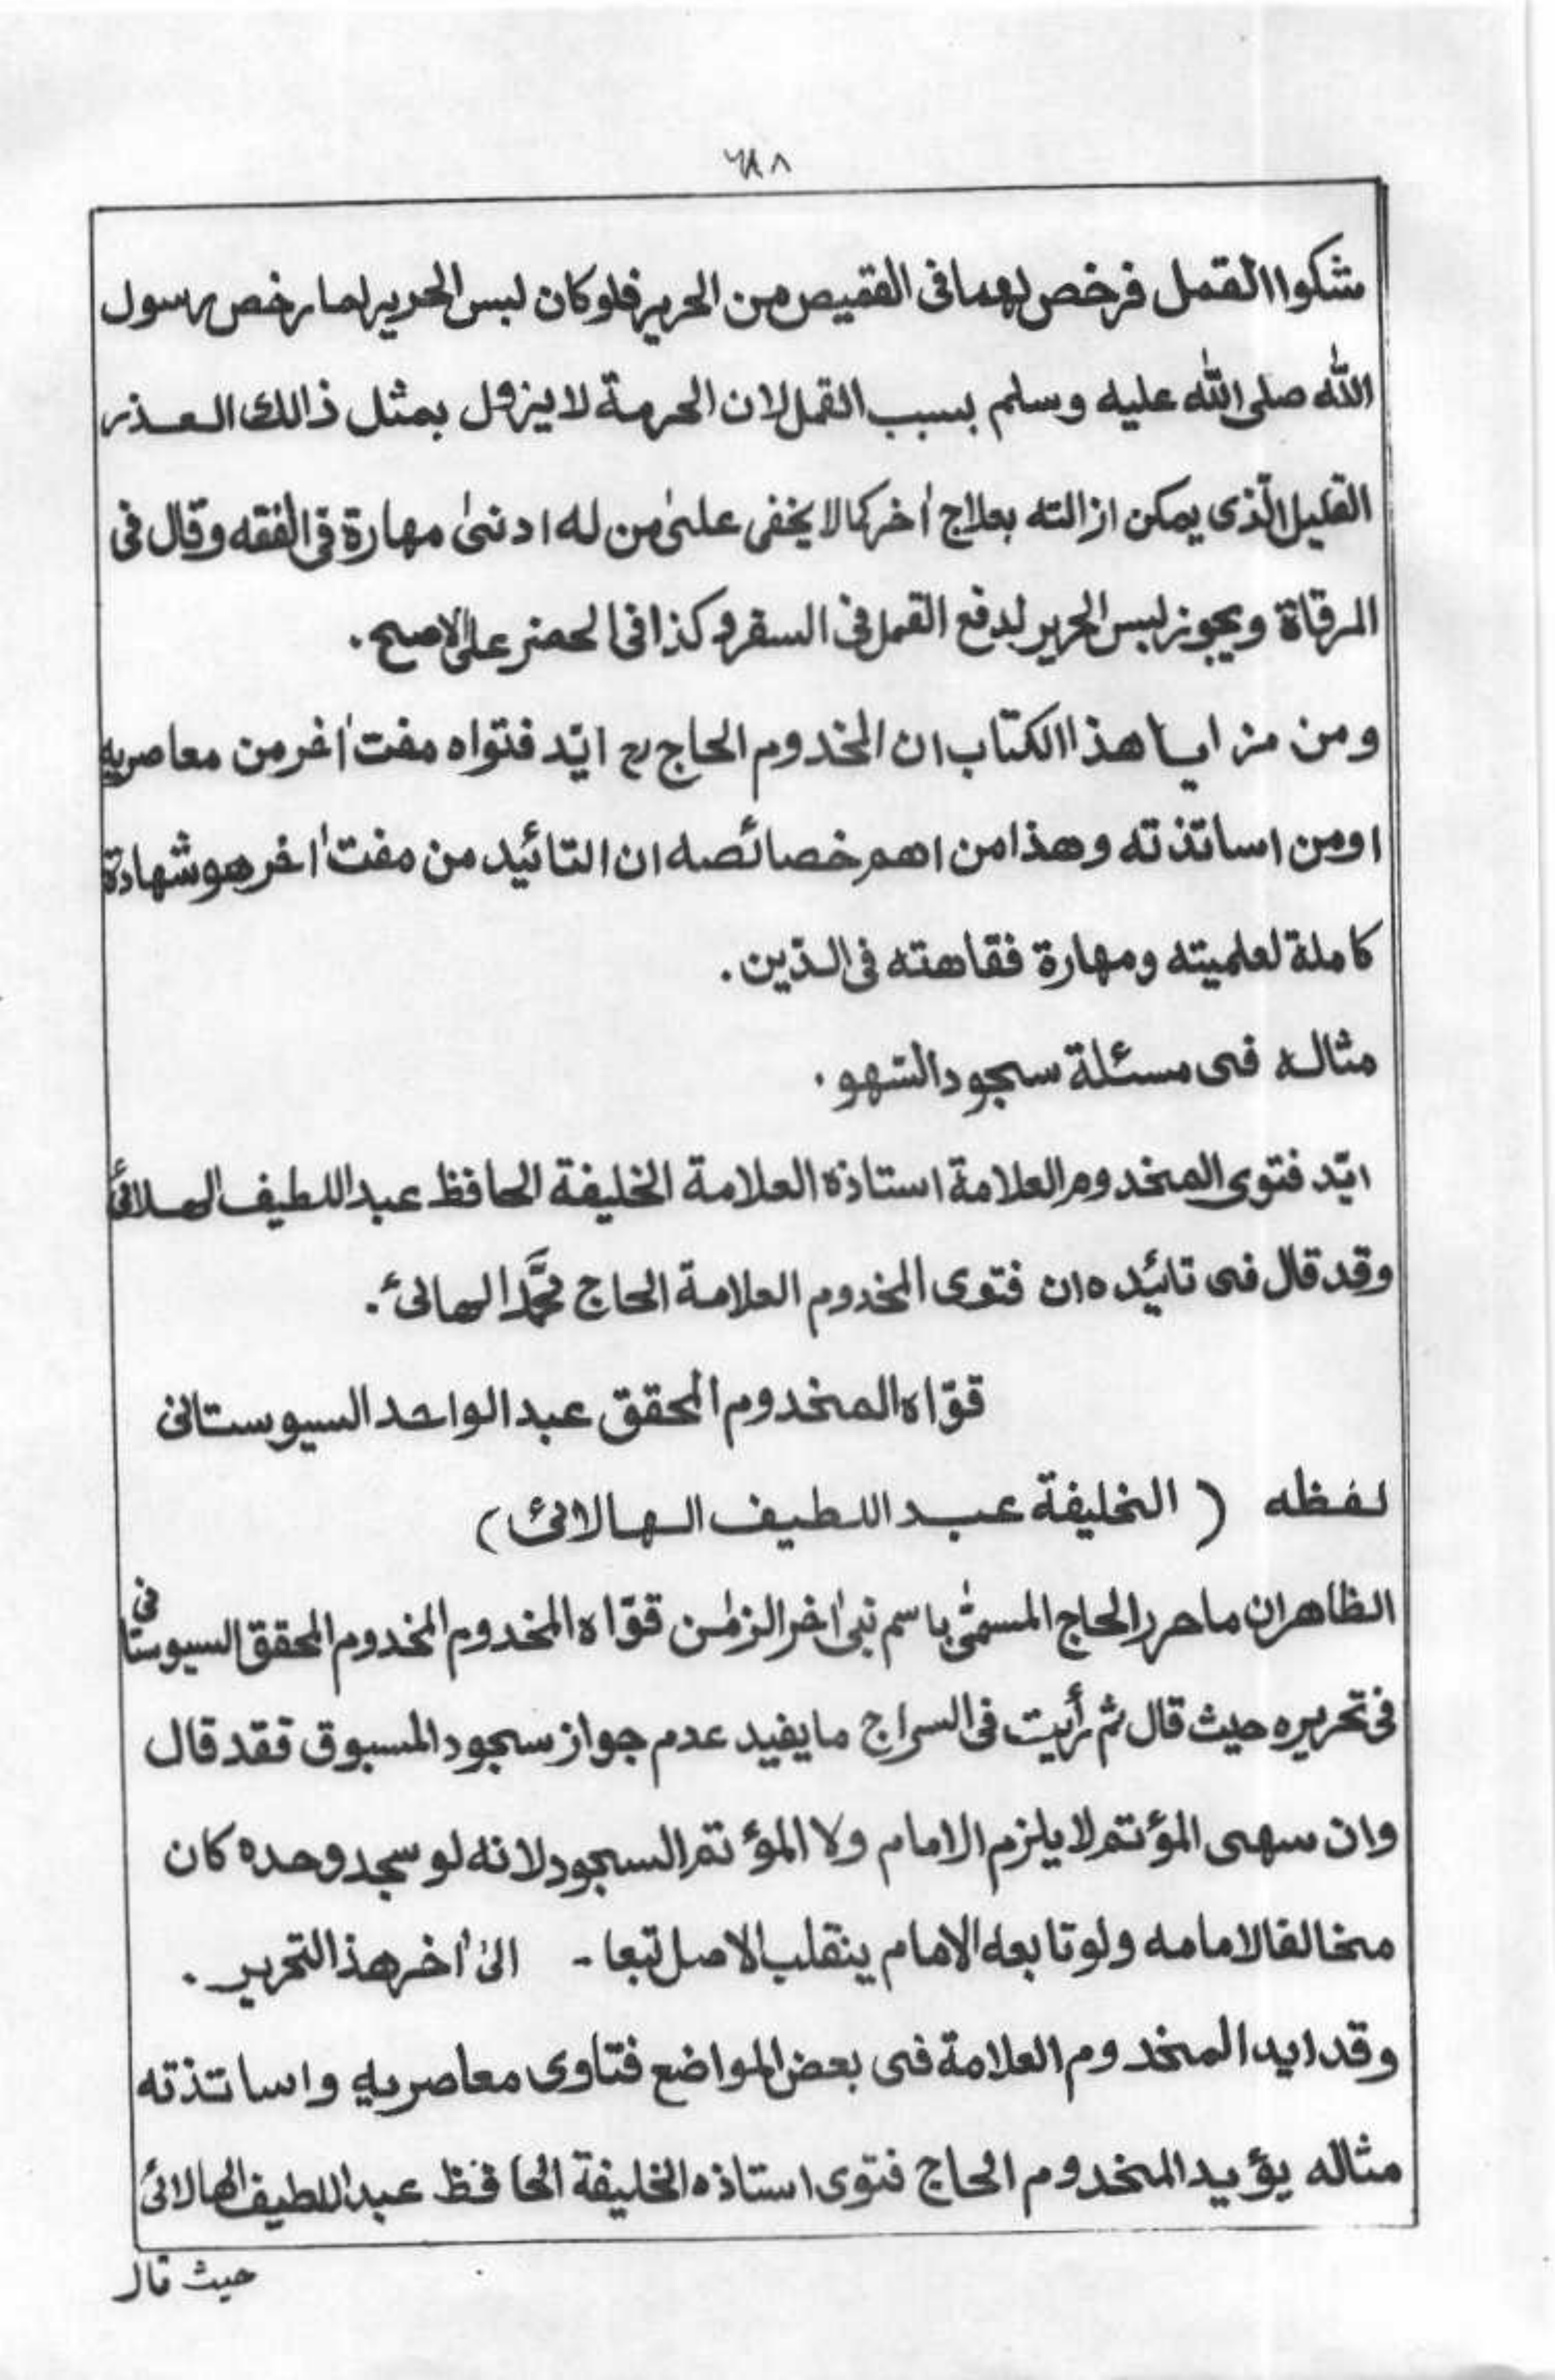 شكوا القمل فرخص لهما فى القميص من الحرير فلو كان لبس الحرير لما رخص رسول
الله صلى الله عليه وسلم بسبب القمل لان الحرمة لا يزول بمثل ذالك العذر
القليل الّذى يمكن ازالته بعلاج اٰخر كما لا يخفى علىٰ من له ادنىٰ مهارة فى الفقه وقال فى
المرقاة ويجوز لبس الحرير لدفع القمل فى السفر وكذا فى الحضر على الاصح .
ومن مزايا هذا الكتاب ان المخدوم الحاج رح ايّد فتواه مفت اٰخر من معاصريه
او من اساتذته وهذا من اهم خصائصه ان التائيد من مفت اٰخر هو شهادة
كاملة لعلميته ومهارة فقاهته فى الدّين .
مثاله فى مسئلة سجود السّهو .
ايّد فتوى المخدوم العلامة استاذه العلامة الخليفة الحافظ عبد اللطيف الهالائىؒ
وقد قال فى تائيده ان فتوى المخدوم العلامة الحاج محمَّد الهالائى .
قوّاه المخدوم المحقق عبد الواحد السيوستانى
لفظه ( الخليفة عبد اللطيف الهالائى )
الظاهر ان ما حرر الحاج المسمّٰى باسم نبى اٰخر الزمٰن قوّاه المخدوم المخدوم المحقق السيوستانى
فى تحريره حيث قال ثم رأيت فى السراج ما يفيد عدم جواز سجود المسبوق فقد قال
وان سهى المؤتم لا يلزم الامام ولا المؤتم السجود لانه لو سجد وحده كان
مخالفا لامامه ولو تابعه الامام ينقلب الاصل تبعا - الىٰ اٰخر هذا التحرير .
وقد ايد المخدوم العلامة فى بعض المواضع فتاوى معاصريه واساتذته
مثاله يؤيد المخدوم الحاج فتوى استاذه الخليفة الحافظ عبد اللطيف الهالائى
حيث قال